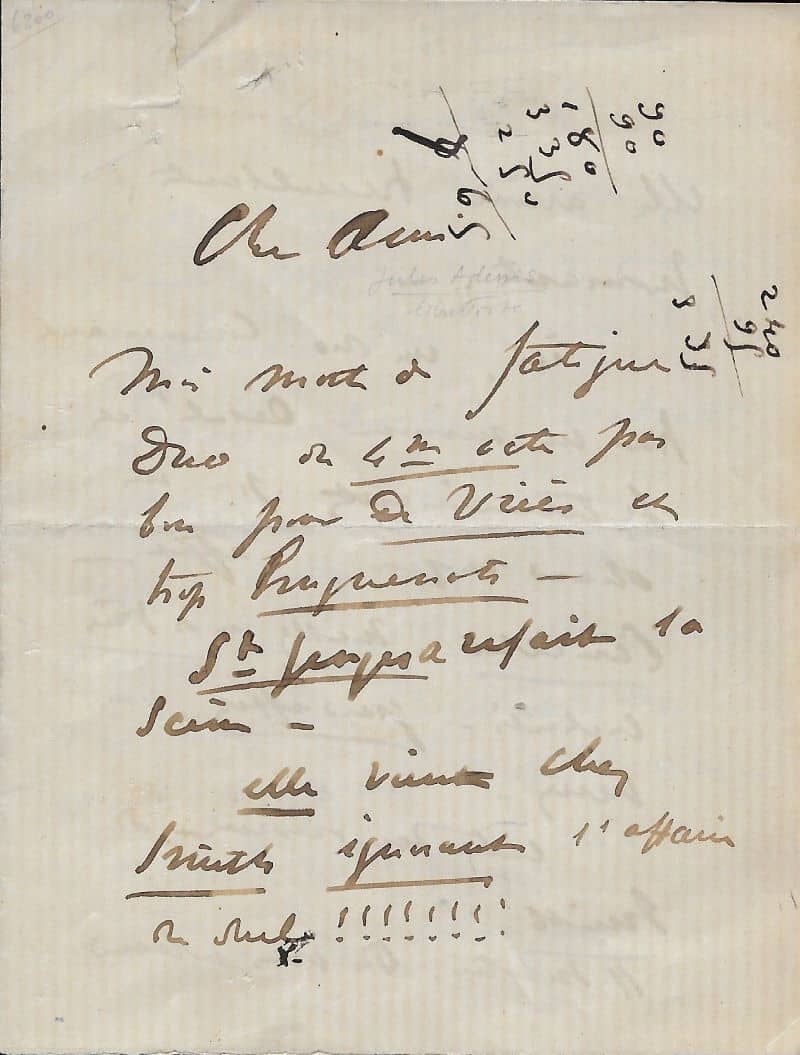 6200
90
90
180
335
25
8 65
Cher Ami
Jules Adenis
240
95
335
Mis mort de fatigue
Duo du 4me acte pas
bon pour De Vriès et
trop Huguenots —
St Georges a refait la
Scène —
elle vient chez
Smith ignorant l'affaire
du duel !!!!!!!